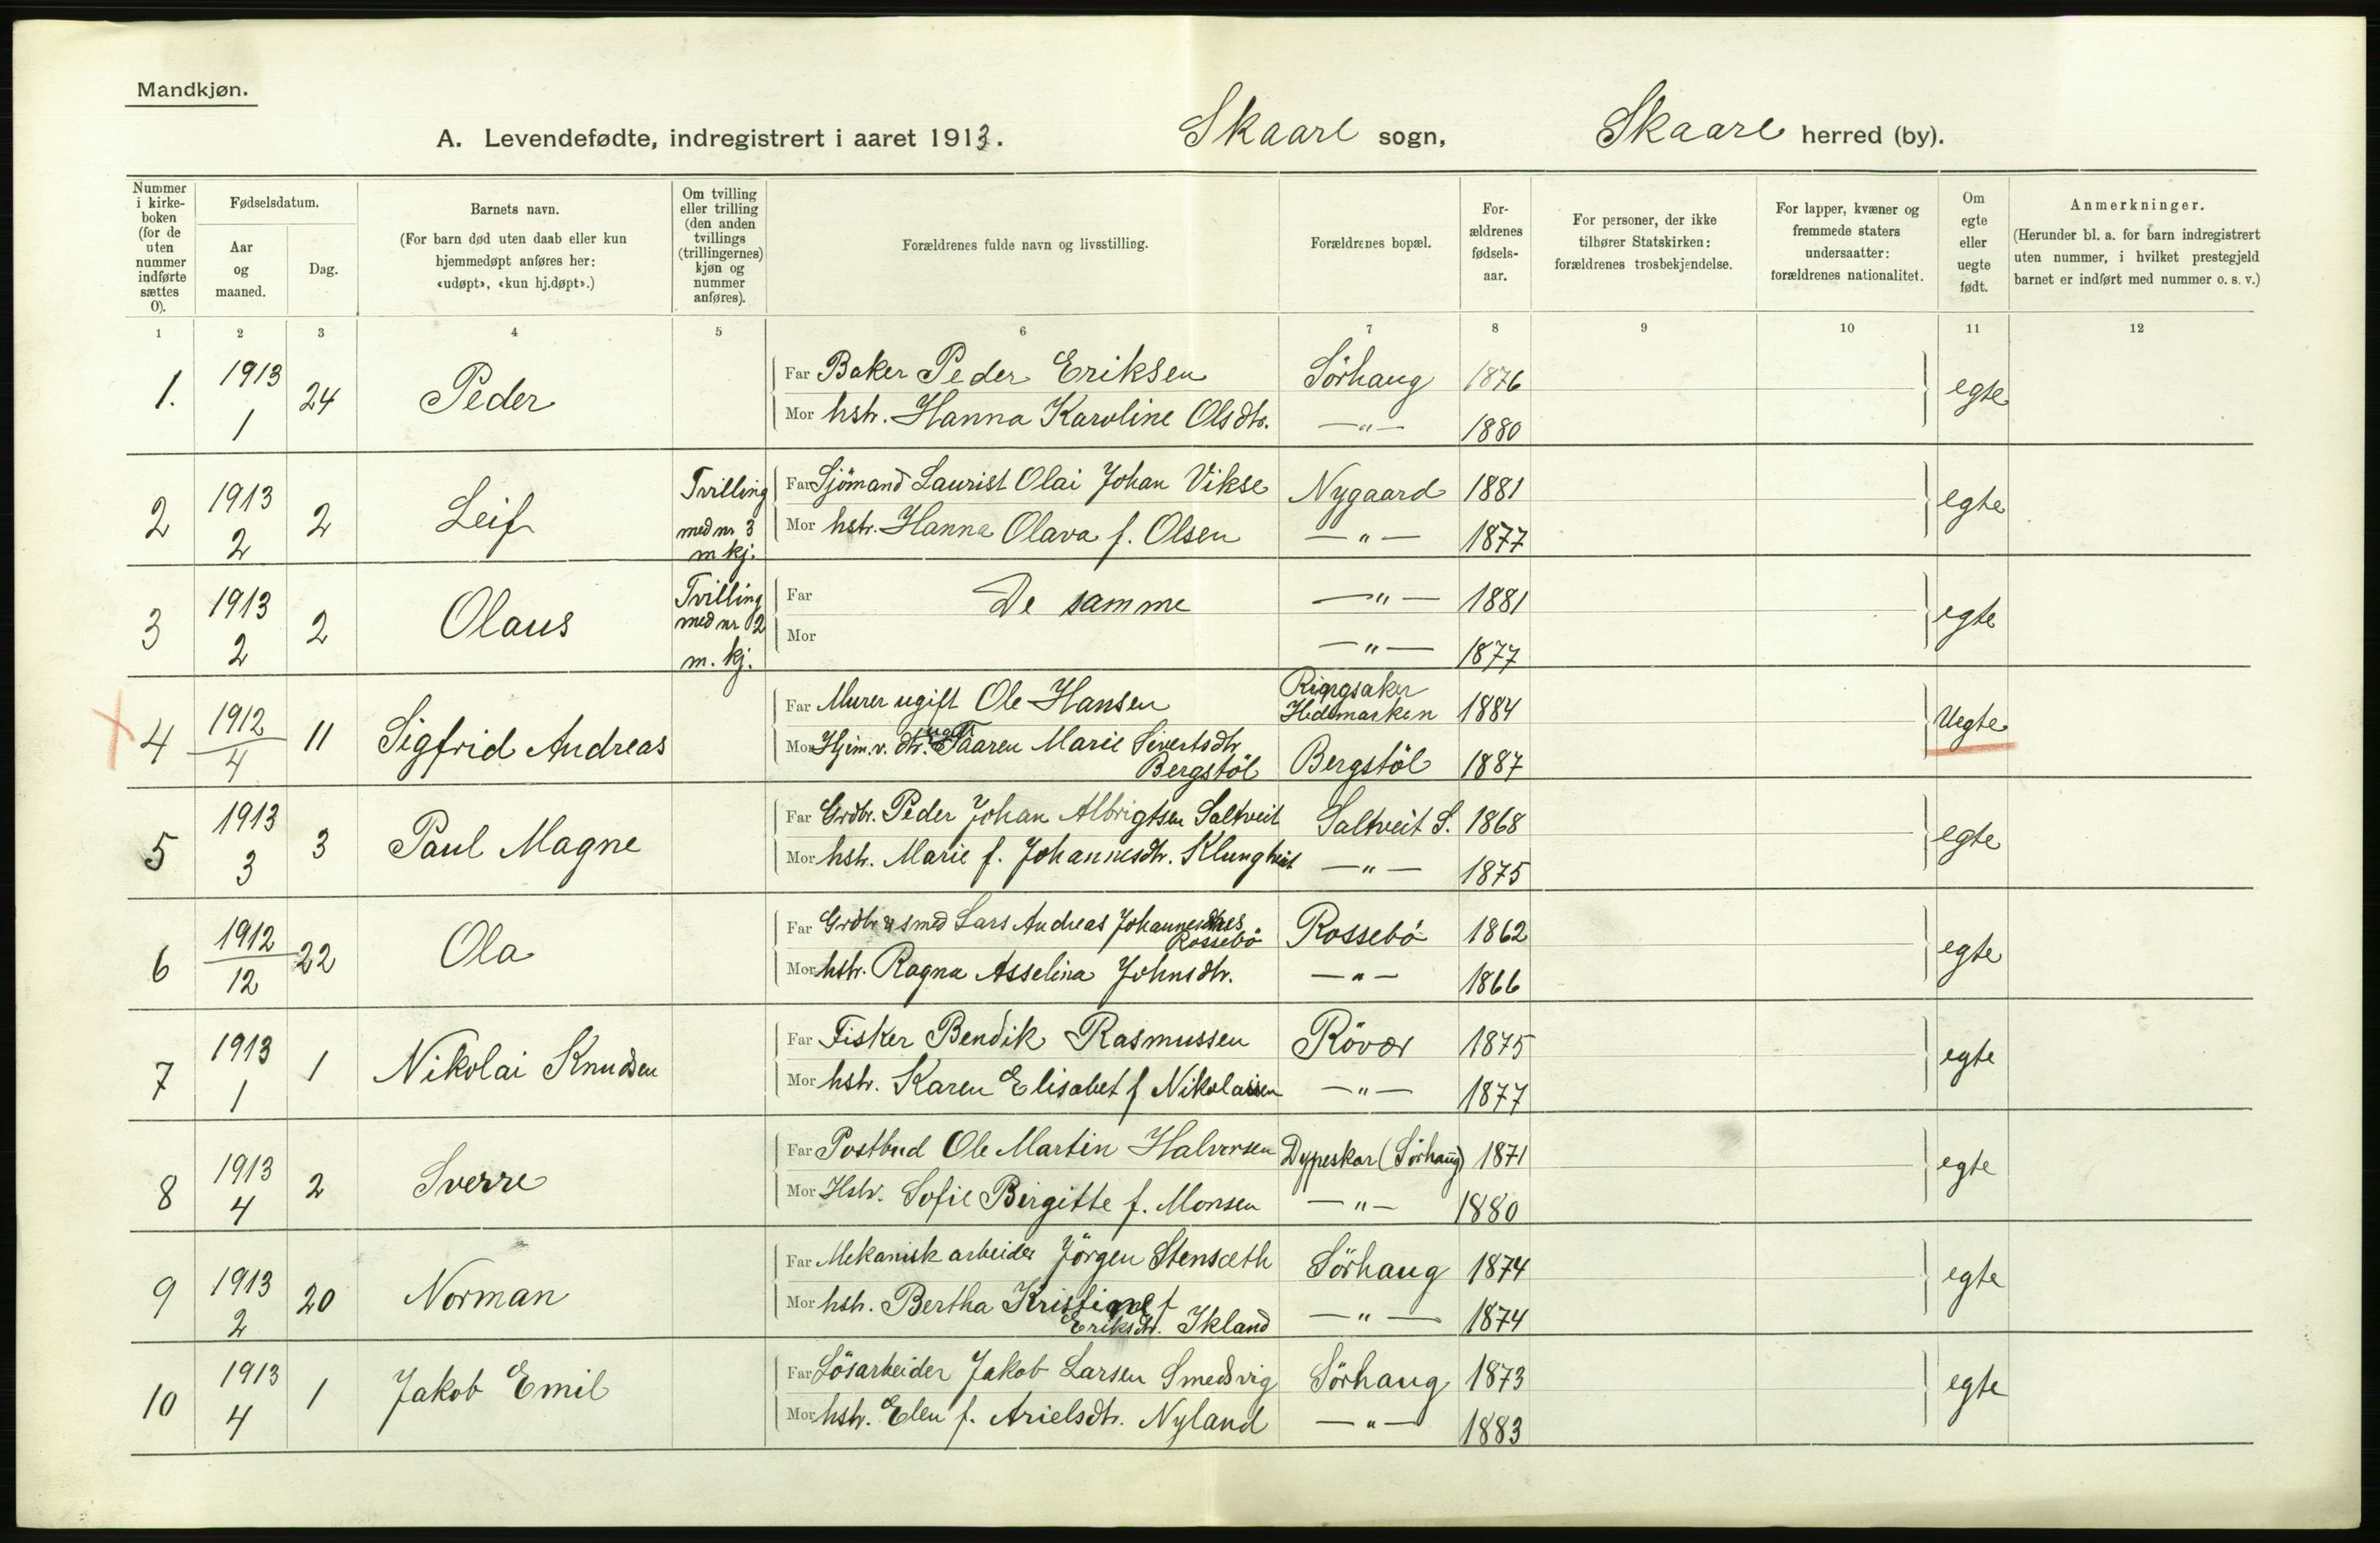 Mandkjøn.
A. Levendefødte, indregistrert i aaret 1913. Skaare sogn, Skaare herred (by).
Nummer i kirke-boken (for de uten nummer indførte sættes 0).
Fødselsdatum.
Aar og maaned.
Dag.
Barnets navn.
(For barn død uten daab eller kun hjemmedøpt anføres her: «udøpt», «kun hj.døpt».)
Om tvilling eller trilling (den anden tvillings (trillingernes) kjøn og nummer anføres).
Forældrenes fulde navn og livsstilling.
Forældrenes bopæl.
For-ældrenes fødsels-aar.
For personer, der ikke tilhører Statskirken: forældrenes trosbekjendelse.
For lapper, kvæner og fremmede staters undersaatter: forældrenes nationalitet.
Om egte eller uegte født.
Anmerkninger.
(Herunder bl. a. for barn indregistrert uten nummer, i hvilket prestegjeld barnet er indført med nummer o. s. v.)
1 2 3 4 5 6 7 8 9 10 11 12
1. 1913 1 24 Peder Far Baker Peder Eriksen Sörhaug 1876 egte
Mor hstr. Hanna Karoline Olsdtr. —"— 1880
2 1913 2 2 Leif Tvilling med nr 3 m kj. Far Sjömand Laurist Olai Johan Vikse Nygaard 1881 egte
Mor hstr. Hanna Olava f. Olsen —"— 1877
3 1913 2 2 Olaus Tvilling med nr 2 m. kj. Far De samme —"— 1881 egte
Mor —"— 1877
4 1912 4 11 Sigfrid Andreas Far Murer ugift Ole Hansen Ringsaker Hedemarken 1884 Uegte
Mor Hjim.v. dtr. ugift Taaren Marie Sivertsdtr Bergstöl Bergstöl 1887
5 1913 3 3 Paul Magne Far Grdbr. Peder Johan Albrigtsen Saltveit Saltveit S. 1868 egte
Mor hstr. Marie f. Johannesdtr. Klungtveit —"— 1875
6 1912 12 22 Ola Far Grdbr & smed Lars Andreas Rossebö Rossebö 1862 egte
Mor hstr. Ragna Asselina Johnsdtr. —"— 1866
7 1913 1 1 Nikolai Knudsen Far Fisker Bendik Rasmussen Rövær 1875 egte
Mor hstr. Karen Elisabet f Nikolaisen —"— 1877
8 1913 4 2 Sverre Far Postbud Ole Martin Halvorsen Dypeskar (Sörhaug) 1871 egte
Mor Hstr. Sofie Birgitte f. Monsen —"— 1880
9 1913 2 20 Norman Far Mekanisk arbeider Jörgen Stensæth Sörhaug 1874 egte
Mor hstr. Bertha Kristine f Eriksdtr. Ikland —"— 1874
10 1913 4 1 Jakob Emil Far Lösarbeider Jakob Larsen Smedsvig Sörhaug 1873 egte
Mor hstr. Elen f. Arielsdtr. Nyland —"— 1883